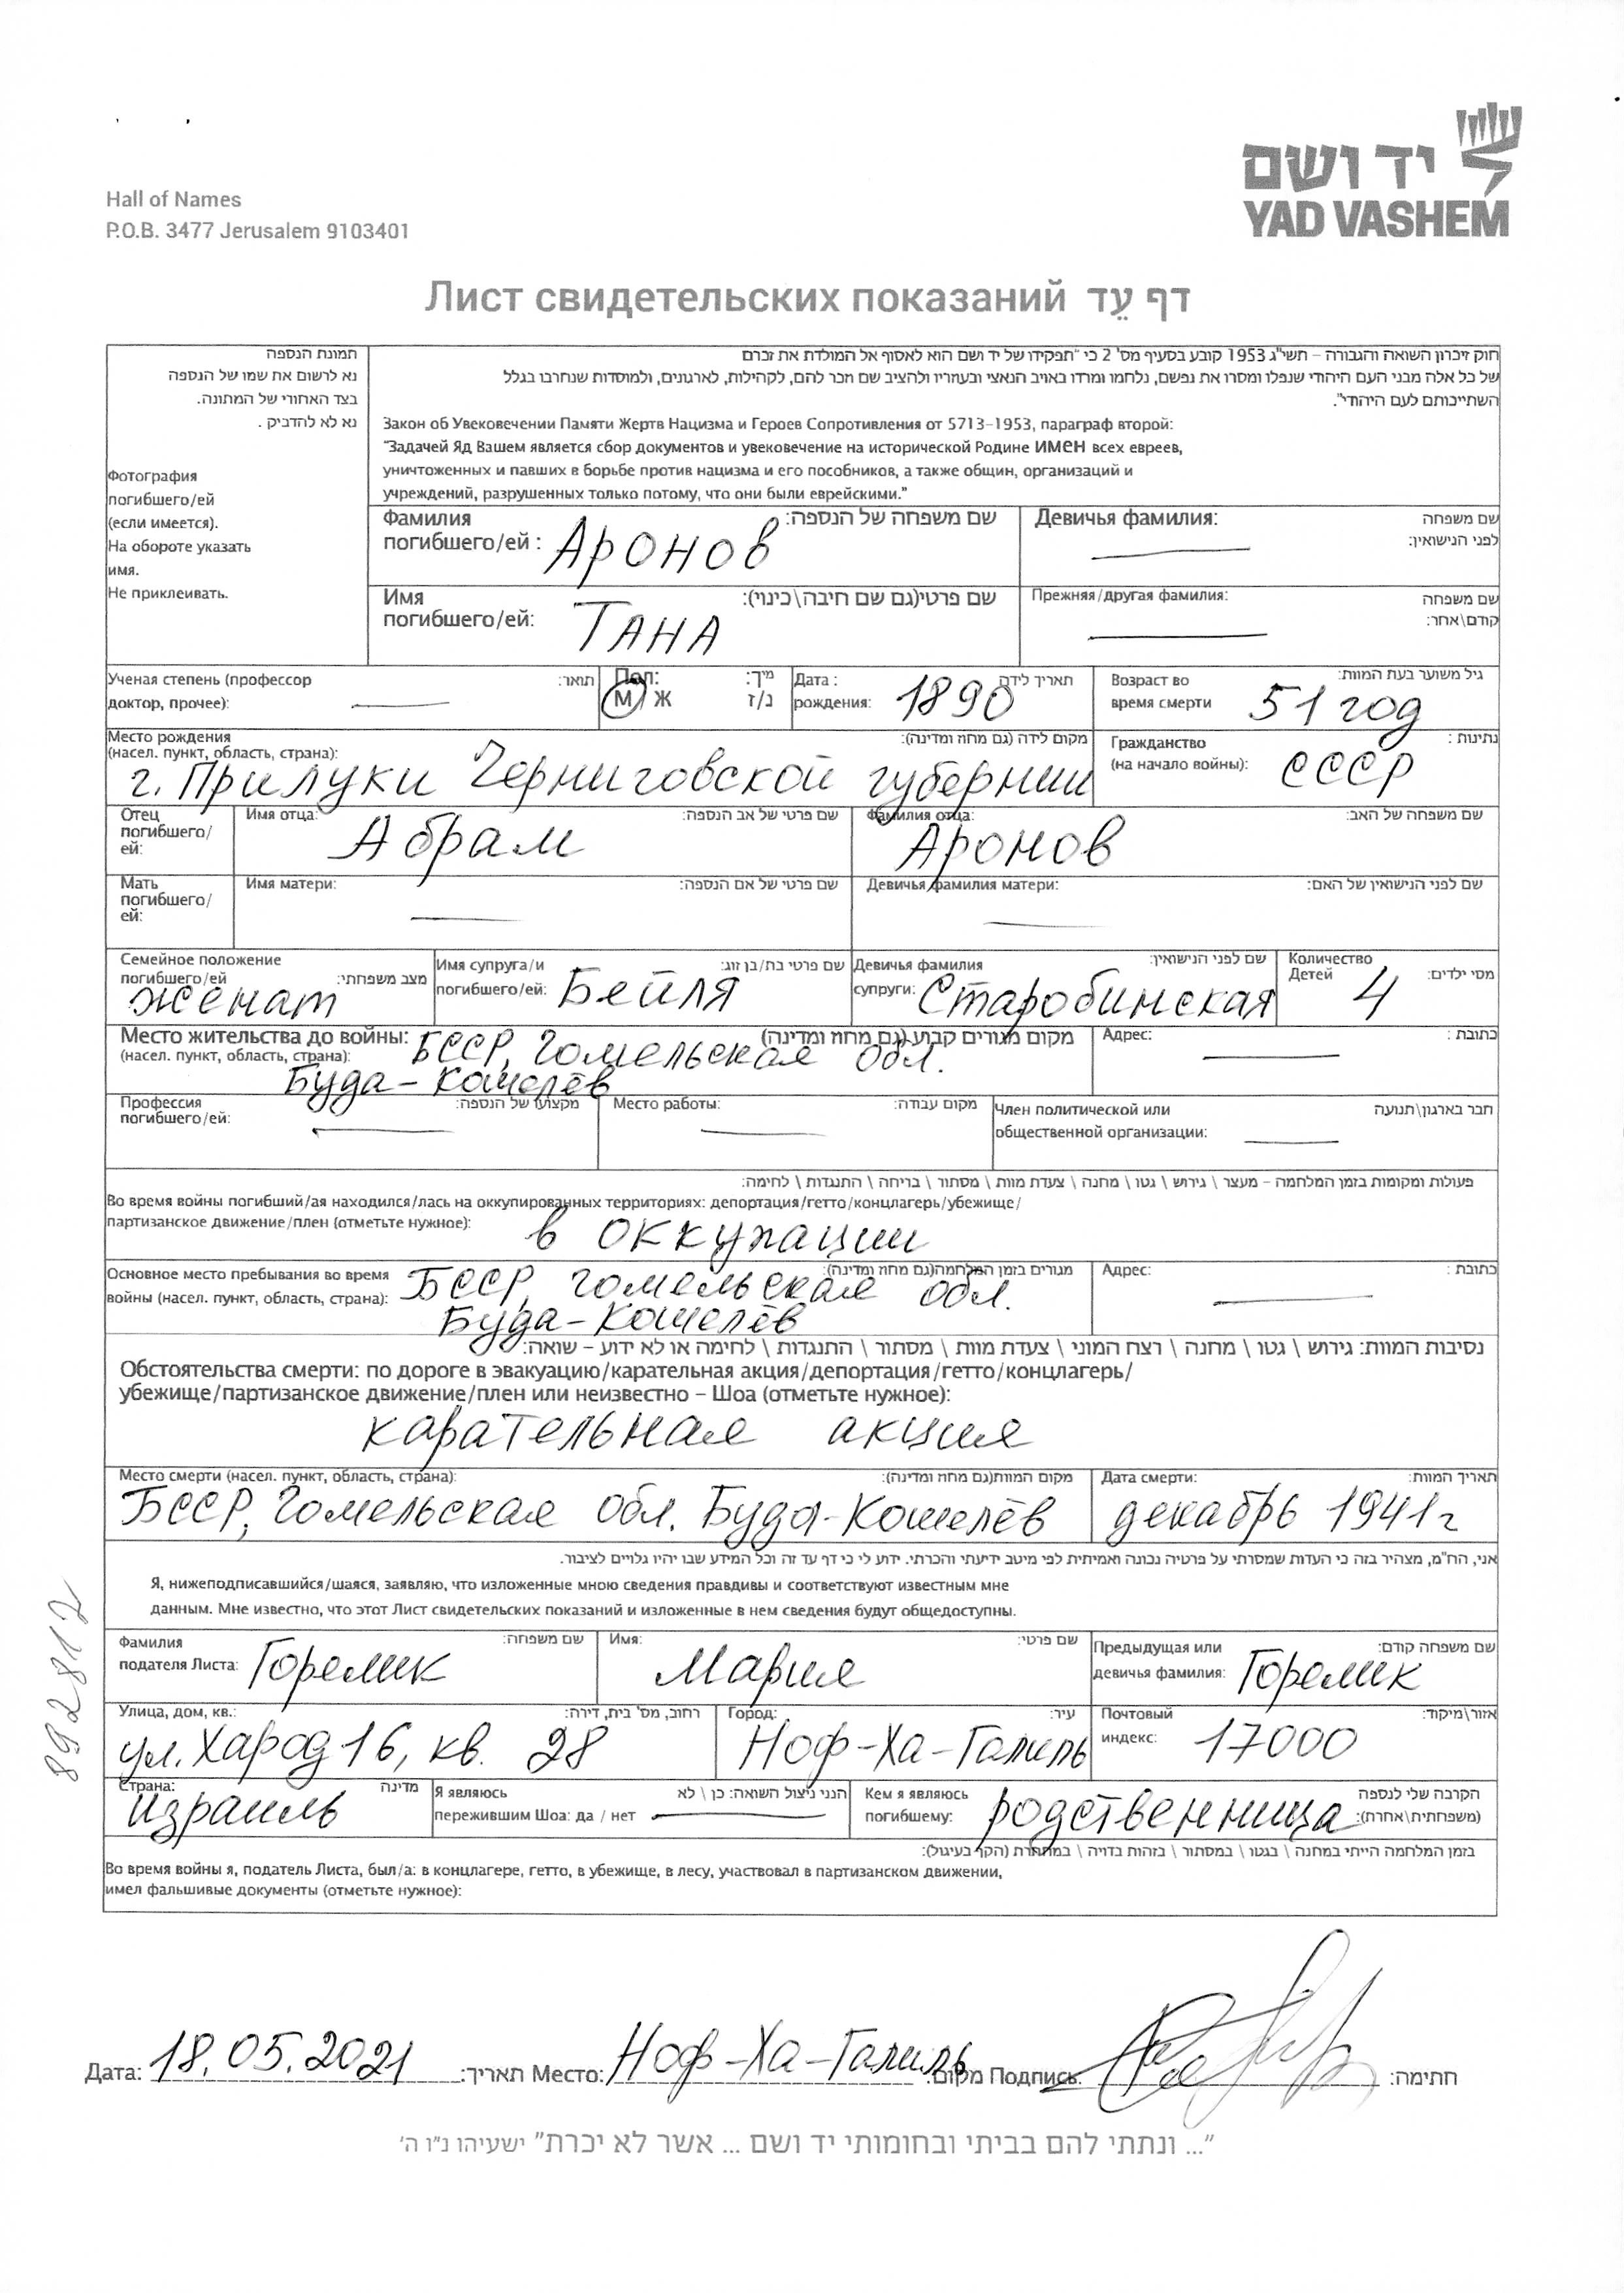 יד ושם
YAD VASHEM
Hall of Names
P.O.B. 3477 Jerusalem 9103401
Лист свидетельских показаний דף עֵד
תמונת הנספה
נא לרשום את שמו של הנספה
בצד האחורי של המתונה.
נא לא להדביק.
Фотография
погибшего/ей
(если имеется).
На обороте указать
имя.
Не приклеивать.
חוק זיכרון השואה והגבורה – תשי"ג 1953 קובע בסעיף מס' 2 כי "תפקידו של יד ושם הוא לאסוף אל המולדת את זכרם
של כל אלה מבני העם היהודי שנפלו ומסרו את נפשם, נלחמו ומרדו באויב הנאצי ובעוזריו ולהציב שם וזכר להם, לקהילות, לארגונים, ולמוסדות שנחרבו בגלל
השתייכותם לעם היהודי".
Закон об Увековечении Памяти Жертв Нацизма и Героев Сопротивления от 5713-1953, параграф второй:
"Задачей Яд Вашем является сбор документов и увековечение на исторической Родине имен всех евреев,
уничтоженных и павших в борьбе против нацизма и его пособников, а также общин, организаций и
учреждений, разрушенных только потому, что они были еврейскими."
Фамилия погибшего/ей: Аронов שם משפחה של הנספה:
Девичья фамилия: שם משפחה לפני הנישואין:
Имя погибшего/ей: Тана שם פרטי(גם שם חיבה\כינוי):
Прежняя/другая фамилия: שם משפחה קודם\אחר:
Ученая степень (профессор תואר:
доктор, прочее):
Пол: מין:
М/Ж נ/ז
Дата рождения: 1890 תאריך לידה
Возраст во время смерти 51 год גיל משוער בעת המוות:
Место рождения מקום לידה (גם מחוז ומדינה):
(насел. пункт, область, страна):
г. Прилуки Черниговской губернии
Гражданство נתינות:
(на начало войны): СССР
Отец погибшего/ей:
Имя отца: Абрам שם פרטי של אב הנספה:
Фамилия отца: Аронов שם משפחה של האב:
Мать погибшего/ей:
Имя матери: שם פרטי של אם הנספה:
Девичья фамилия матери: שם לפני הנישואין של האם:
Семейное положение погибшего/ей מצב משפחתי:
женат
Имя супруга/и שם פרטי בת/בן זוג:
погибшего/ей: Бейля
Девичья фамилия שם לפני הנישואין:
супруги: Старобинская
Количество Детей 4 מס' ילדים:
Место жительства до войны: מקום מגורים קבוע(גם מחוז ומדינה)
(насел. пункт, область, страна): БССР, Гомельская обл.
Буда-Кошелёв
Адрес: כתובת:
Профессия погибшего/ей: מקצועו של הנספה:
Место работы: מקום עבודה:
Член политической или חבר בארגון\תנועה
общественной организации:
פעולות ומקומות בזמן המלחמה – מעצר \ גירוש \ גטו \ מחנה \ צעדת מוות \ מסתור \ בריחה \ התנגדות \ לחימה:
Во время войны погибший/ая находился/лась на оккупированных территориях: депортация/гетто/концлагерь/убежище/
партизанское движение/плен (отметьте нужное):
в оккупации
Основное место пребывания во время מגורים בזמן המלחמה(גם מחוז ומדינה):
войны (насел. пункт, область, страна): БССР, Гомельская обл.
Буда-Кошелёв
Адрес: כתובת:
נסיבות המוות: גירוש \ גטו \ מחנה \ רצח המוני \ צעדת מוות \ מסתור \ התנגדות \ לחימה או לא ידוע – שואה:
Обстоятельства смерти: по дороге в эвакуацию/карательная акция/депортация/гетто/концлагерь/
убежище/партизанское движение/плен или неизвестно – Шоа (отметьте нужное):
карательная акция
Место смерти (насел. пункт, область, страна): מקום המוות(גם מחוז ומדינה):
БССР, Гомельская обл. Буда-Кошелёв
Дата смерти: תאריך המוות:
декабрь 1941г
אני, הח"מ, מצהיר בזה כי העדות שמסרתי על פרטיה נכונה ואמיתית לפי מיטב ידיעתי והכרתי. ידוע לי כי דף עד זה וכל המידע שבו יהיו גלויים לציבור.
Я, нижеподписавшийся/шаяся, заявляю, что изложенные мною сведения правдивы и соответствуют известным мне
данным. Мне известно, что этот Лист свидетельских показаний и изложенные в нем сведения будут общедоступны.
Фамилия שם משפחה:
подателя Листа: Горелик
Имя: Мария שם פרטי:
Предыдущая или שם משפחה קודם:
девичья фамилия: Горелик
Улица, дом, кв.: רחוב, מס' בית, דירה:
ул. Харод 16, кв. 28
Город: עיר:
Ноф-Ха-Галиль
Почтовый אזור\מיקוד:
индекс: 17000
Страна: מדינה
Израиль
Я являюсь הנני ניצול השואה: כן \ לא
пережившим Шоа: да / нет
Кем я являюсь הקרבה שלי לנספה
погибшему: родственница (משפחתית\אחרת):
בזמן המלחמה הייתי במחנה \ בגטו \ במסתור \ בזהות בדויה \ במחתרת (הקף בעיגול):
Во время войны я, податель Листа, был/а: в концлагере, гетто, в убежище, в лесу, участвовал в партизанском движении,
имел фальшивые документы (отметьте нужное):
8928112
Дата: 18.05.2021 תאריך: Место: Ноф-Ха-Галиль מקום: Подпись: חתימה:
"... ונתתי להם בביתי ובחומותי יד ושם ... אשר לא יכרת" ישעיהו נ"ו ה'